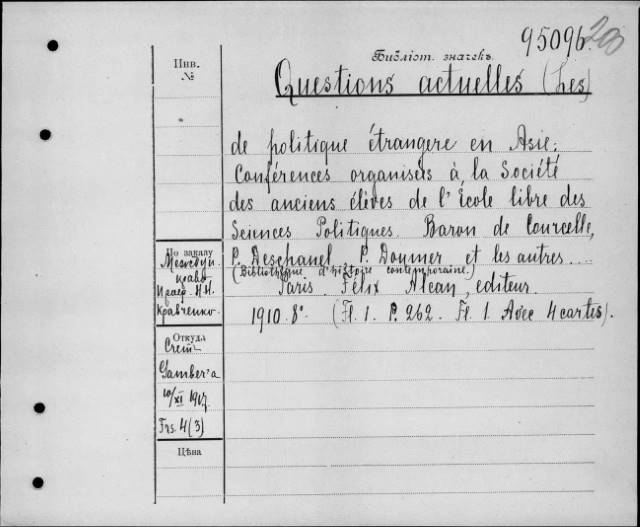 95096
200
Библіот. значекъ
Инв.
№
Questions actuelles (Les)
de politique étrangere en Asie.
Conférences organiseés à la Société
des anciens élèves de l'École libre des
Sciences Politiques. Baron de Courcelle,
P. Deschanel P. Doumer et les autres....
(Bibliothèque d'histoire contemporaine.)
Paris Félix Alcan, editeur
1910. 8°. (Fl. 1. P. 262. Fl. 1. Avec 4 cartes).
По заказу
Н.И.
Кравченко
Откуда
Счет
Gamber'a
10/XI 1917
Frs. 4 (3)
Цѣна